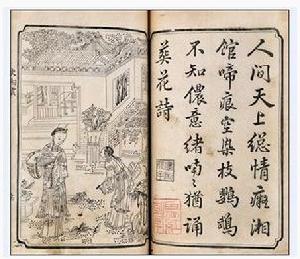 人間天上總情癡湘
館啼痕空染枝鸚鵡
不知儂意緒喃〻猶誦
葬花詩